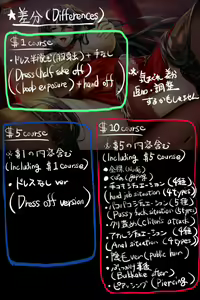 ★差分(Differences)
$1 course
・ドレス半脱ぎ(胸突出)+手なし
(Dress half take off
(boob exposure) + hand off)
※気まぐれに差分
追加・調整
するかもしれません
$5 course
※$1の内容含む
(Including $1 course)
・ドレスなし ver
(Dress off version)
$10 course
※$5の内容含む
(Including $5 course)
・くぱぁ
・手コキシチュエーション(4種)
(hand job situation (4 types))
・パコパコシチュエーション(5種)
(Pussy fuck situation (5 types))
・クリ責め(Clitoris attack)
・アナルシチュエーション(4種)
(Anal situation (4 types))
・陰毛 ver (Public hair)
・ぶっかけ事後
(Bukkake after)
・ピアッシング (Piercing)